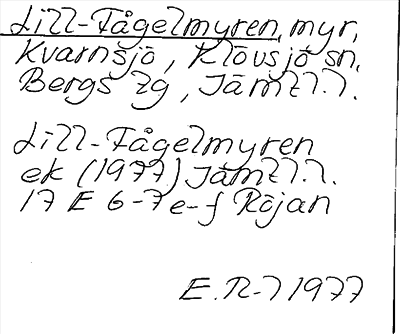 Lill-Fågelmyren, myr,
Kvarnsjö, Klövsjö sn,
Bergs tg, Jämtl. l.
Lill-Fågelmyren
ek (1977) Jämtl. l.
17 E 6-7 e-f Röjan
E. R-l 1977